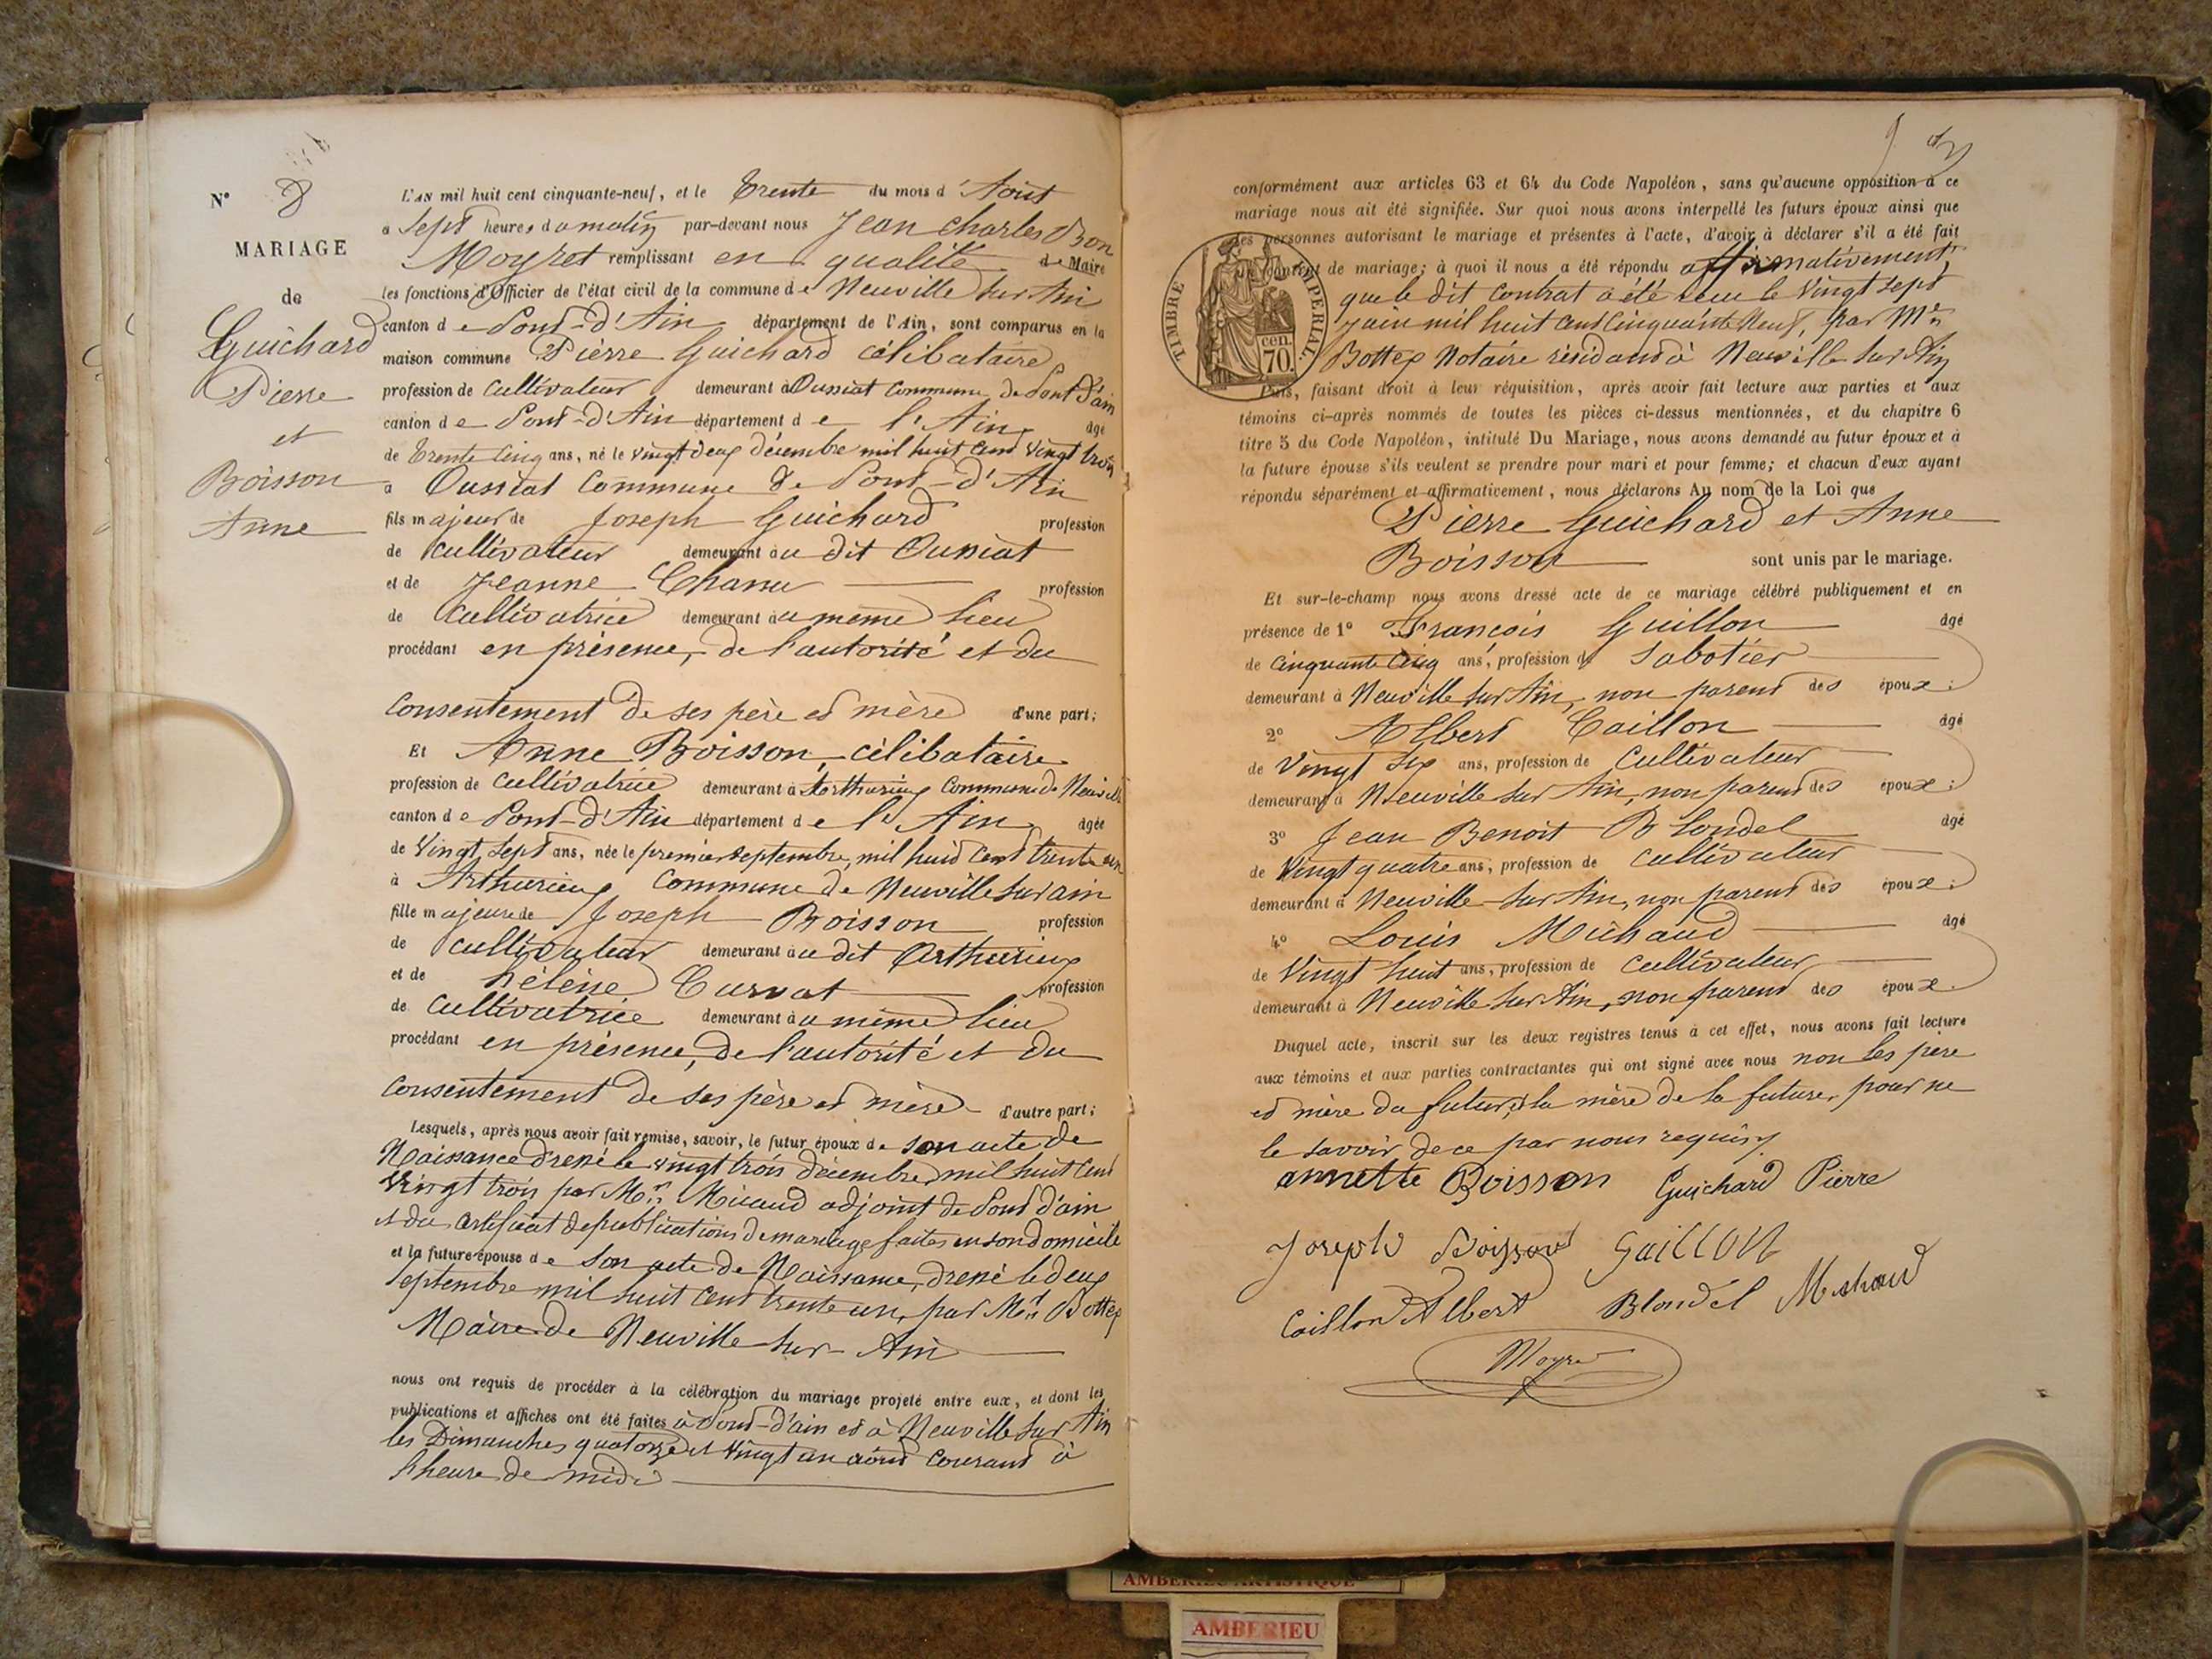 N° 8
MARIAGE
de
Guichard
Pierre
et
Boisson
Anne
L'AN mil huit cent cinquante-neuf, et le Trente du mois d'Août
à Sept heures du matin par-devant nous Jean Charles
Moyret remplissant en qualité de Maire
les fonctions d'Officier de l'état civil de la commune de Neuville sur Ain
canton de Pont-d'Ain département de l'Ain, sont comparus en la
maison commune Pierre Guichard célibataire
profession de cultivateur demeurant à Oussiat Commune de Pont d'ain
canton de Pont-d'Ain département de l'Ain âgé
de trente cinq ans, né le vingt deux décembre mil huit cent vingt trois
à Oussiat Commune de Pont-d'Ain
fils majeur de Joseph Guichard profession
de cultivateur demeurant au dit Oussiat
et de Jeanne Chanu profession
de Cultivatrice demeurant au même lieu
procédant en présence, de l'autorité et du
Consentement de ses père et mère d'une part;
Et Anne Boisson, célibataire
profession de Cultivatrice demeurant à Arthurieux Commune de Neuville
canton de Pont-d'Ain département de l'Ain âgée
de Vingt Sept ans, née le premier Septembre, mil huit cent trente un
à Arthurieux Commune de Neuville sur ain
fille majeure de Joseph Boisson profession
de cultivateur demeurant au dit Arthurieux
et de hélène Curvat profession
de Cultivatrice demeurant au même lieu
procédant en présence, de l'autorité et du
Consentement de ses père et mère d'autre part;
Lesquels, après nous avoir fait remise, savoir, le futur époux de son acte de
Naissance dressé le vingt trois décembre mil huit cent
Vingt trois par Mr. Micaud adjoint de Pont d'ain
et du certificat de publications de mariage faites en son domicile
et la future épouse de son acte de Naissance, dressé le deux
Septembre mil huit cent trente un, par Mr. Bottex
Maire de Neuville sur Ain
nous ont requis de procéder à la célébration du mariage projeté entre eux, et dont les
publications et affiches ont été faites à Pont-d'ain et à Neuville sur Ain
les Dimanches quatorze et Vingt un août Courant à
l'heure de midi
conformément aux articles 63 et 64 du Code Napoléon, sans qu'aucune opposition à ce
mariage nous ait été signifiée. Sur quoi nous avons interpellé les futurs époux ainsi que
les personnes autorisant le mariage et présentes à l'acte, d'avoir à déclarer s'il a été fait
un contrat de mariage; à quoi il nous a été répondu affirmativement
que le dit contrat a été reçu le vingt sept
juin mil huit cent cinquante neuf, par Me
Bottex Notaire résidant à Neuville sur Ain
TIMBRE IMPERIAL.
cen.
70.
Puis, faisant droit à leur réquisition, après avoir fait lecture aux parties et aux
témoins ci-après nommés de toutes les pièces ci-dessus mentionnées, et du chapitre 6
titre 5 du Code Napoléon, intitulé Du Mariage, nous avons demandé au futur époux et à
la future épouse s'ils veulent se prendre pour mari et pour femme; et chacun d'eux ayant
répondu séparément et affirmativement, nous déclarons Au nom de la Loi que
Pierre Guichard et Anne
Boisson sont unis par le mariage.
Et sur-le-champ nous avons dressé acte de ce mariage célébré publiquement et en
présence de 1° François Guillon âgé
de Cinquante cinq ans, profession de Sabotier
demeurant à Neuville sur Ain, non parent des époux;
2° Albert Caillon âgé
de Vingt six ans, profession de Cultivateur
demeurant à Neuville sur Ain, non parent des époux;
3° Jean Benoit Blondel âgé
de Vingt quatre ans, profession de Cultivateur
demeurant à Neuville sur Ain, non parent des époux;
4° Louis Michaud âgé
de Vingt huit ans, profession de Cultivateur
demeurant à Neuville sur Ain, non parent des époux.
Duquel acte, inscrit sur les deux registres tenus à cet effet, nous avons fait lecture
aux témoins et aux parties contractantes qui ont signé avec nous non les père
et mère du futur, et la mère de la future, pour ne
le savoir de ce par nous requis
annette Boisson Guichard Pierre
Joseph Boisson Guillon
Caillon Albert Blondel Michaud
Moyret
AMBERIEU ARTISTIQUE
AMBERIEU